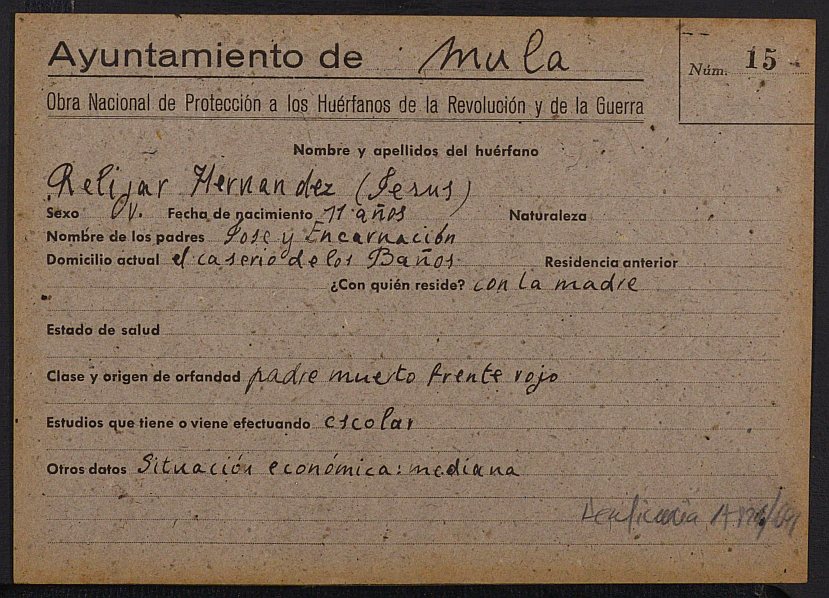 Ayuntamiento de Mula
Núm. 15
Obra Nacional de Protección a los Huérfanos de la Revolución y de la Guerra
Nombre y apellidos del huérfano
Relijar Hernandez (Jesus)
Sexo V. Fecha de nacimiento 11 años Naturaleza
Nombre de los padres Jose y Encarnación
Domicilio actual el caserio de los Baños. Residencia anterior
¿Con quién reside? con la madre
Estado de salud
Clase y origen de orfandad padre muerto frente rojo
Estudios que tiene o viene efectuando escolar
Otros datos Situación económica: mediana